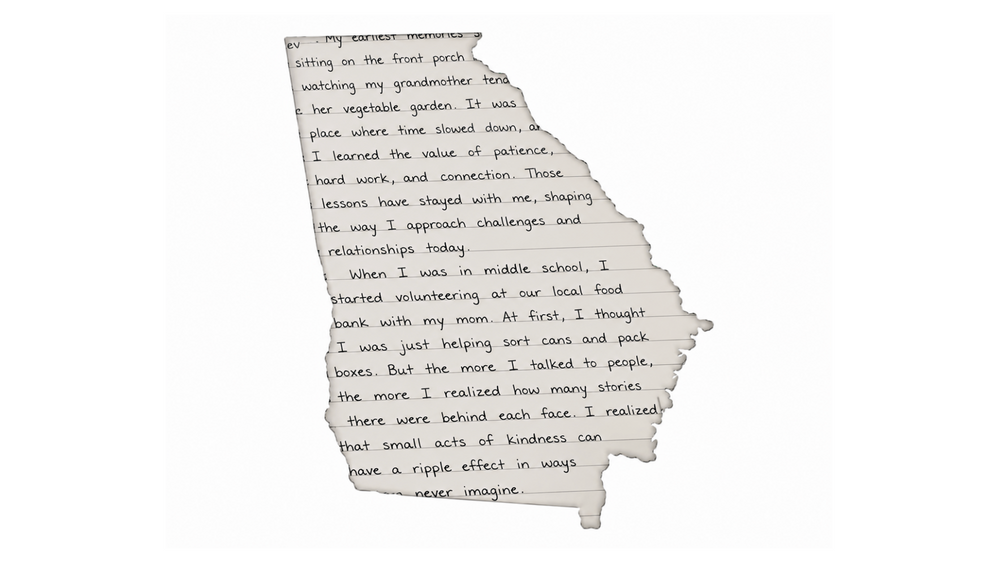 My earliest memories
sitting on the front porch
watching my grandmother tend
her vegetable garden. It was
place where time slowed down,
I learned the value of patience,
hard work, and connection. Those
lessons have stayed with me, shaping
the way I approach challenges and
relationships today.
When I was in middle school, I
started volunteering at our local food
bank with my mom. At first, I thought
I was just helping sort cans and pack
boxes. But the more I talked to people,
the more I realized how many stories
there were behind each face. I realized
that small acts of kindness can
have a ripple effect in ways
never imagine.